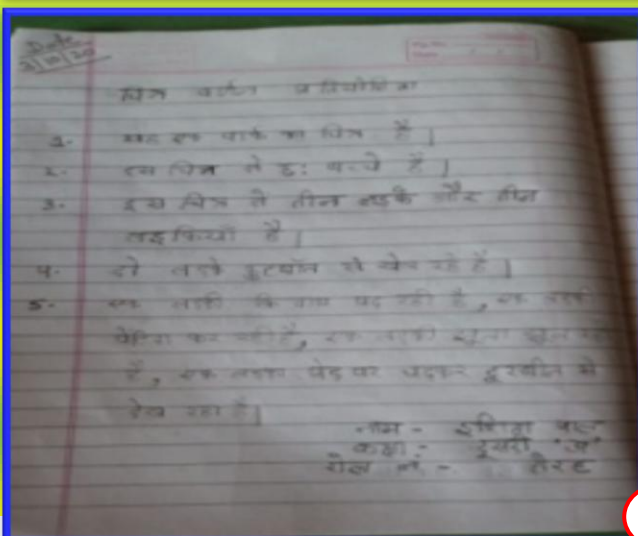 Date
2/10/20
चित्र वर्णन प्रतियोगिता
1. यह एक पार्क का चित्र है |
2. इस चित्र में छ: बच्चे हैं |
3. इस चित्र में तीन लड़के और तीन
लड़कियाँ है |
4. दो लड़के फुटबॉल से खेल रहे हैं |
5. एक लड़की किताब पढ़ रही है, एक लड़की
पेंटिंग कर रही है, एक लड़की झूला झूल रही
है, एक लड़का पेड़ पर चढ़कर दूरबीन से
देख रहा है |
नाम - इशिता
कक्षा - दूसरी 'अ'
रोल नं - तेरह